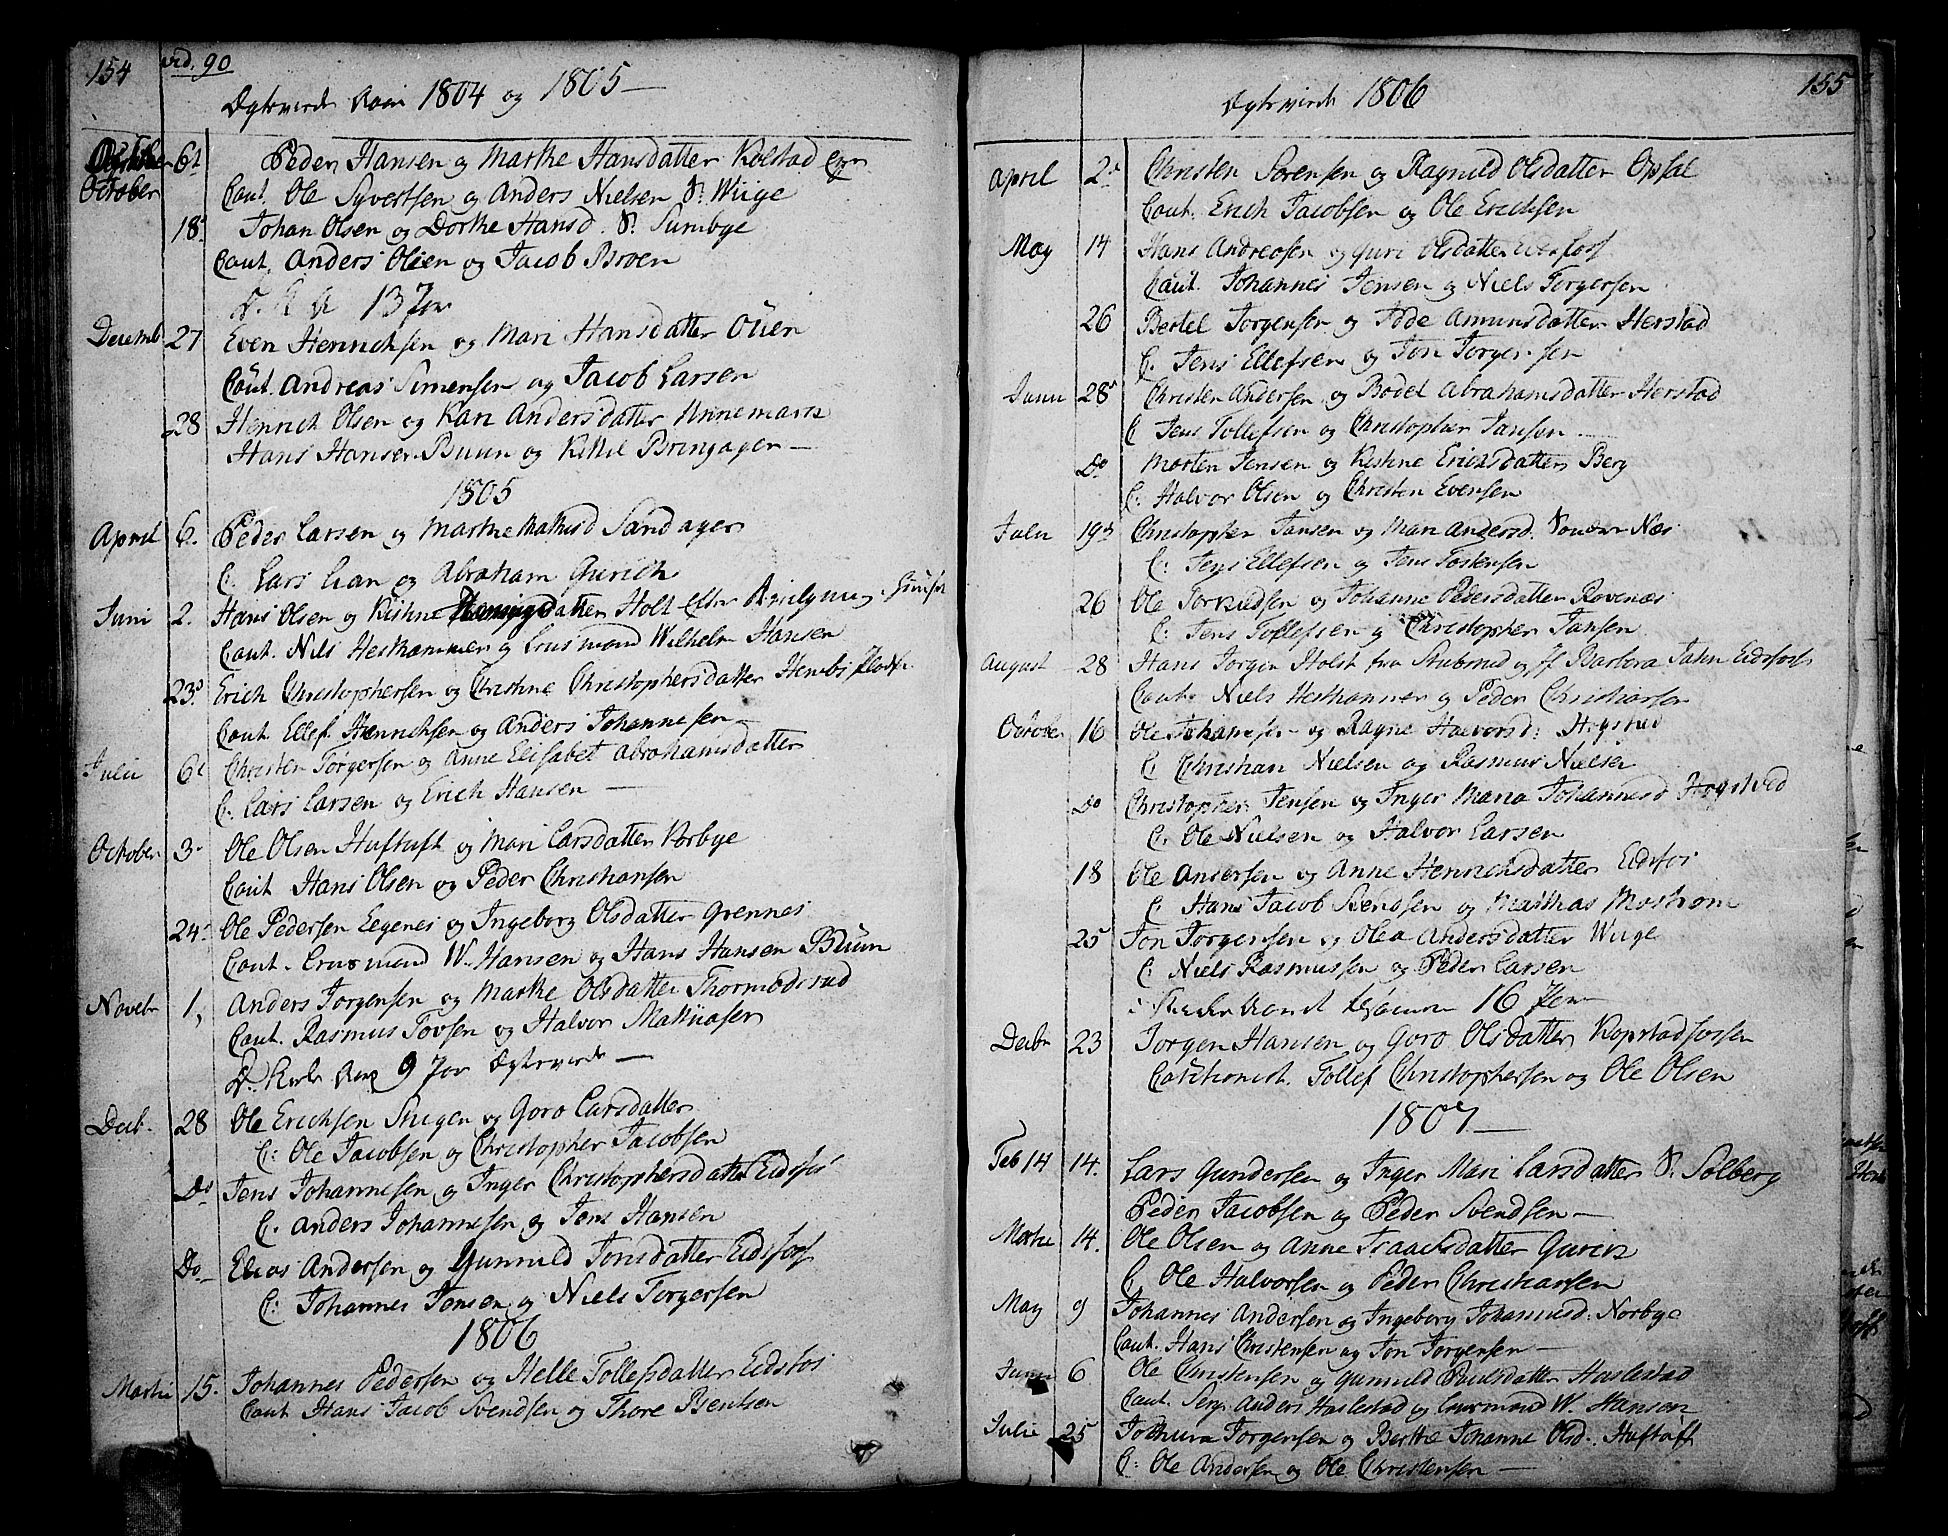 154 vid. 90
1804 og 1805
October 6t Peder Hansen og Marthe Hansdatter Kolstad
Caut. Ole Syvertsen og Anders Nielsen Wiige
18 Johan Olsen og Dorthe Hansd. Sumbye
Caut. Anders Olsen og Jacob Broen
13
Decemb 27 Even Henrichsen og Mari Hansdatter Ouen
Caut. Andreas Simensen og Jacob Larsen
28 Henrich Olsen og Kari Andersdatter
Hans Hansen Buun og Kittil Bringager
1805
April 6. Peder Larsen og Marthe Sandager
C. Lars Lian og Abraham Gurich
Juni 2. Hans Olsen og Kistine Holt
Caut. Nils Hesthammer og Cursmand Wilhelm Hansen
23d Erich Christophersen og Christine Christophersdatter
Caut Ellef Henrichsen og Anders Johannesen
Julii 6t Christen Torgersen og Anne Elisabet Abrahamsdatter
C. Lars Larsen og Erich Hansen
October 3. Ole Olsen Huftuft og Mari Larsdatter Norbye
Caut Hans Olsen og Peder Christiansen
24. Ole Pedersen Eegenes og Ingeborg Olsdatter Grennes
Caut. Cursmand W. Hansen og Hans Hansen Buun
Novebr 1, Anders Jorgensen og Marthe Olsdatter Thormodsrud
Caut. Rasmus Tovsen og Halvor
9 Par
Decb. 28 Ole Erichsen Stigen og Goro Larsdatter
C: Ole Jacobsen og Christopher Jacobsen
Do Jens Johannesen og Inger Christophersdatter Eidsfos
C. Anders Johannesen og Jens Hansen
Do Elias Andersen og Gunnild Jonsdatter Eidsfoss
C: Johannes Jensen og Niels Torgersen
1806
Martii 15. Johannes Pedersen og Helle Tollefsdatter Eidsfos
Caut Hans Jacob Svendsen og Thore Bentsen
1806 155
April 2d Christen Sorensen og Ragnild Olsdatter Opsal
Caut. Erich Jacobsen og Ole Erichsen
May 14 Hans Andreasen og Guri Olsdatter Eidsfoss
Caut. Johannes Jensen og Niels Torgersen
26 Bertel Jorgensen og Amunsdatter Herstad
C. Jens Ellefsen og Jon Jorgensen
Junii 28d Christen Andersen og Bodel Abrahamsdatter Herstad
C Jens Tollefsen og Christopher Jansen
Do Morten Jensen og Kistine Erichsdatter Berg
C: Halvor Olsen og Christen Evensen
Julii 19d Christopher Jansen og Mari Andersd. Næs
C: Jens Ellefsen og Jens Tostensen
26 Ole Torkildsen og Johanne Pedersdatter Revenæs
C: Jens Tollefsen og Christopher Jansen
August 28 Hans Jorgen Holst fra Stubsrud og Jf Barbera Jahn Eidsfoss
Caut. Niels Hesthammer og Peder Christiansen
October 16 Ole Johannesen og Ragne Halvorsd:
C. Christian Nielsen og Rasmus Nielsen
Do Christopher Jensen og Inger Maria Johannesd
C. Ole Nielsen og Halvor Larsen
18 Ole Andersen og Anne Henrichsdatter Eidsfos
C. Hans Jacob Svendsen og Mathias
25 Jon Jorgensen og Olea Andersdatter Wiige
C: Niels Rasmussen og Peder Larsen
16
Decbr 23 Jorgen Hansen og Goro Olsdatter Kopstadfossen
Cautionist. Tollef Christophersen og Ole Olsen
1807
Feb 14 14. Lars Gundersen og Inger Mari Larsdatter Solberg
Peder Jacobsen og Peder Svendsen
14. Ole Olsen og Anne Isaachsdatter
C, Ole Halvorsen og Peder Christiansen
May 9 Johannes Andersen og Ingeborg Johannesd: Norbye
Caut. Hans Christensen og Jon Jorgensen
Junii 6 Ole Christensen og Gunnild Poulsdatter Haslestad
Caut. Serg. Anders Haslestad og Cursmand W. Hansen
Julii 25 Jorgensen og Berthe Johanne Olsd. Huftuft
C: Ole Andersen og Ole Christensen